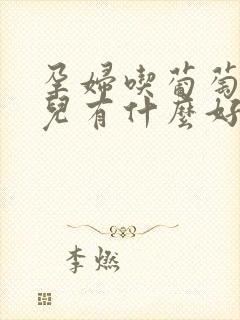 孕婦喫葡萄
兒有什麼好
李燃